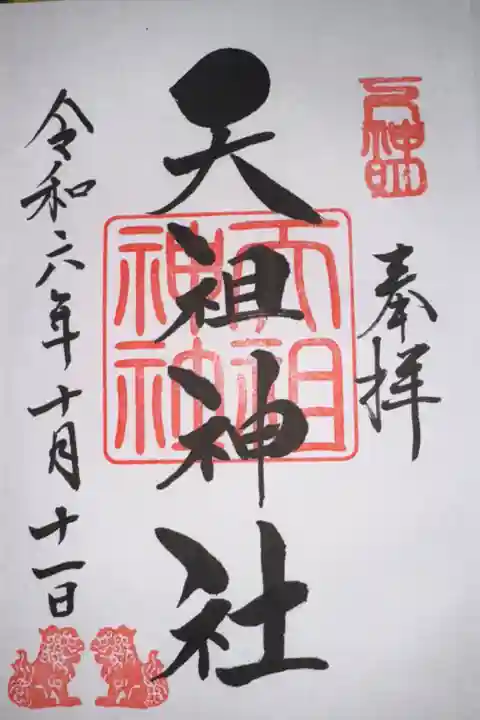 奉拝
天祖神社
天祖神社
令和六年十月十一日